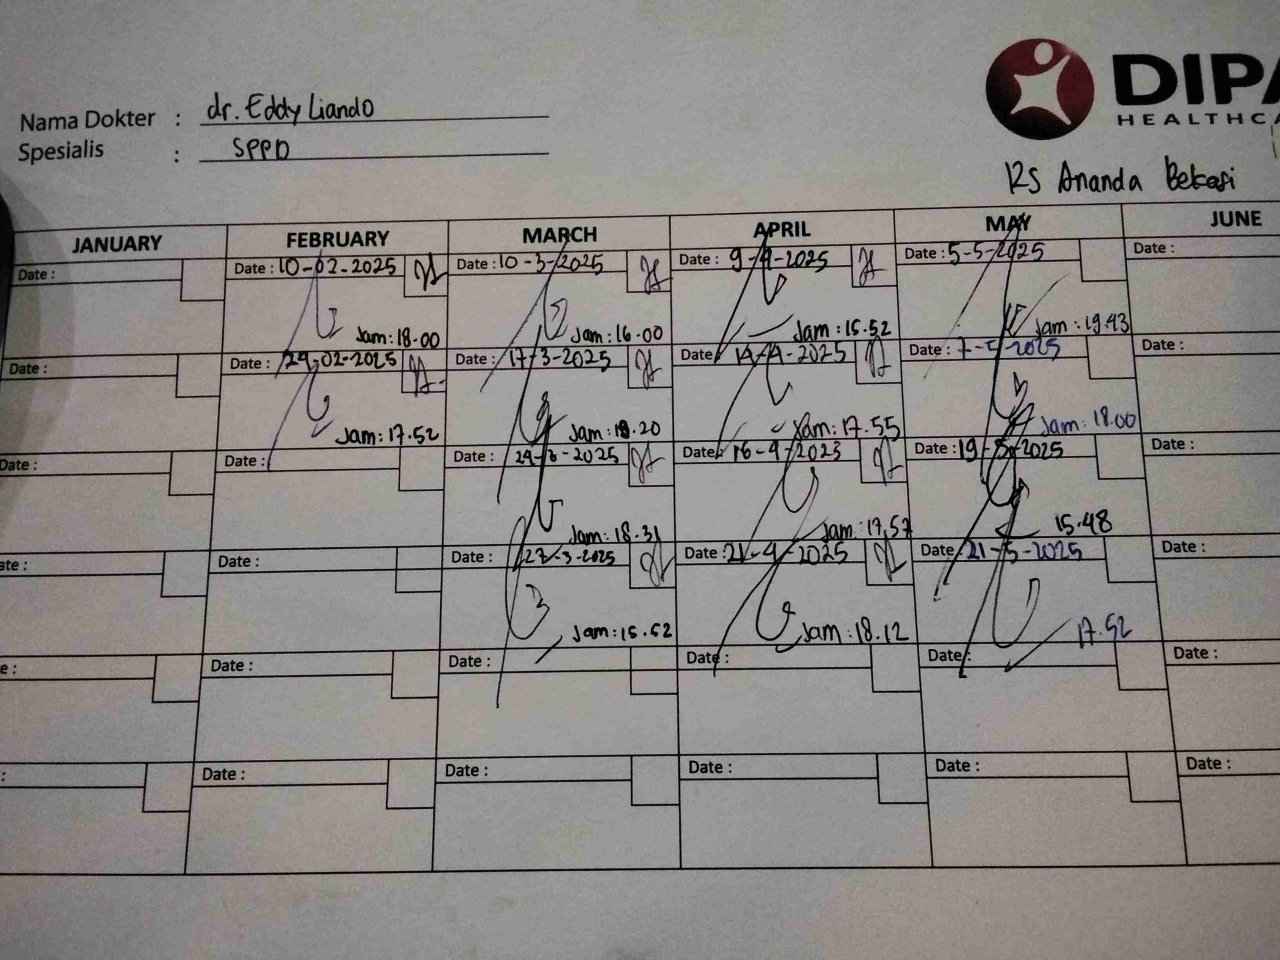 Nama Dokter : dr. Eddy Liando
Spesialis : SPPD
DIPA
HEALTHCA
RS Ananda Bekasi
JANUARY FEBRUARY MARCH APRIL MAY JUNE
Date : Date : 10-02-2025 Date : 10-3-2025 Date : 9-4-2025 Date : 5-5-2025 Date :
Jam: 18.00 Jam: 16.00 Jam: 15.52 Jam: 19.43
Date : Date : 24-02-2025 Date : 17-3-2025 Date 14-4-2025 Date : 7-5-2025 Date :
Jam: 17.52 Jam: 18.20 Jam: 17.55 Jam: 18.00
Date : Date : Date : 24-3-2025 Date 16-4-2025 Date : 19-5-2025 Date :
Jam: 18.31 Jam: 17.57 15.48
ate : Date : Date : 27-3-2025 Date : 21-4-2025 Date : 21-5-2025 Date :
Jam: 15.52 Jam: 18.12 17.52
e : Date : Date : Date : Date : Date :
: Date : Date : Date : Date : Date :